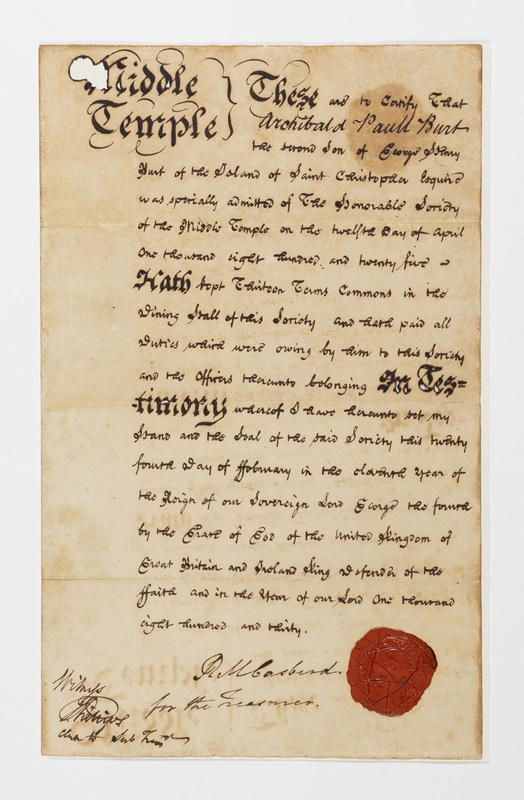 Middle Temple } These are to Certify That
Archibald Paull Burt
the second Son of George Henry
Burt of the Island of Saint Christopher Esquire
was specially admitted of The Honorable Society
of the Middle Temple on the twelfth Day of April
One thousand eight hundred and twenty five
Hath kept Thirteen Terms Commons in the
Dining Hall of this Society and hath paid all
Duties which were owing by him to this Society
and the Officers thereunto belonging In Tes=
timony whereof I have hereunto set my
Hand and the Seal of the said Society this twenty
fourth Day of ffebruary in the eleventh Year of
the Reign of our Sovereign Lord George the fourth
by the Grace of God of the United Kingdom of
Great Britain and Ireland King Defender of the
ffaith and in the Year of our Lord One thousand
eight hundred and thirty.
R M Casberd.
for the Treasurer.
Witness
Phillips
Sub Trear